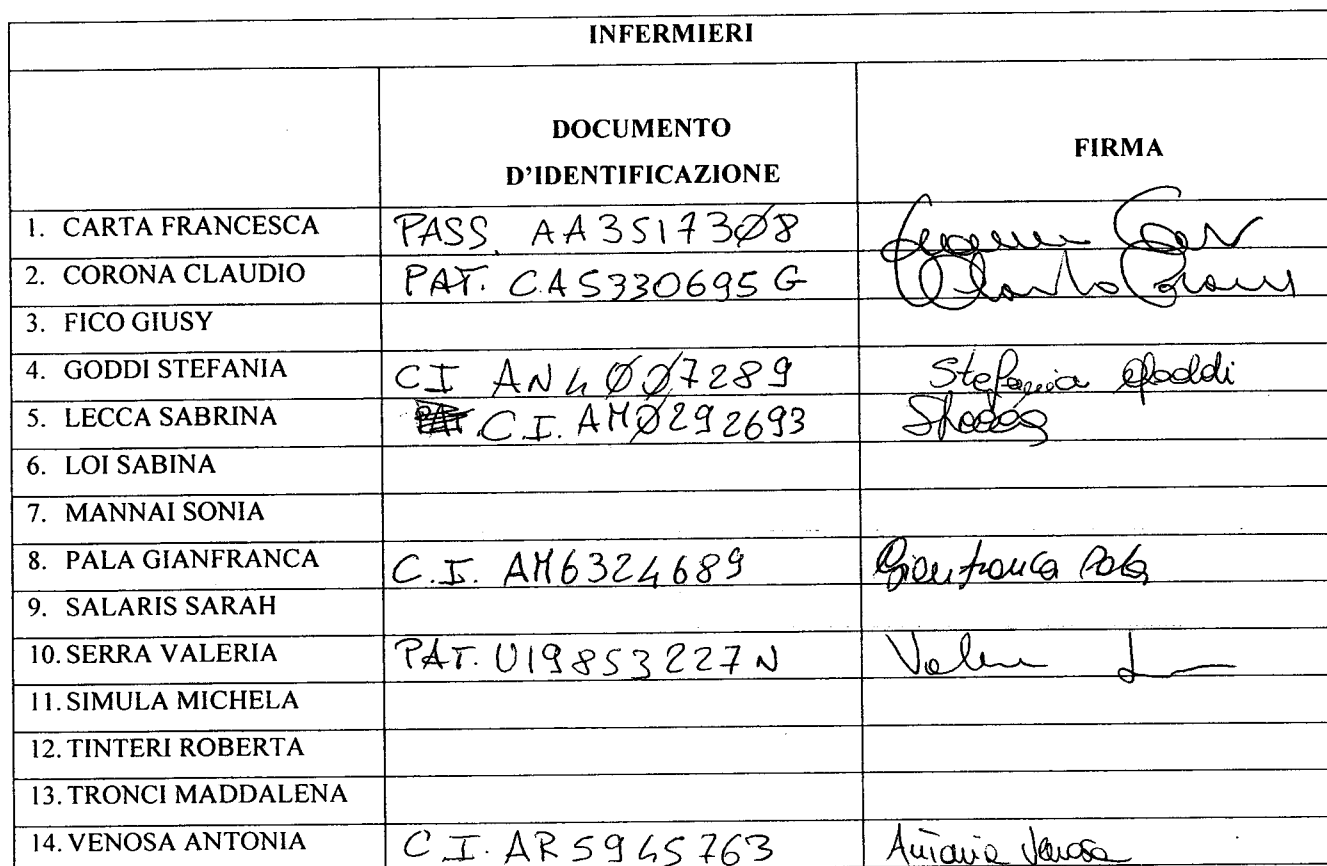 INFERMIERI
DOCUMENTO
D'IDENTIFICAZIONE
FIRMA
1. CARTA FRANCESCA PASS. AA3517308
2. CORONA CLAUDIO PAT. CA5330695G Claudio Corona
3. FICO GIUSY
4. GODDI STEFANIA CI AN4007289 Stefania Goddi
5. LECCA SABRINA C.I. AM0292693
6. LOI SABINA
7. MANNAI SONIA
8. PALA GIANFRANCA C.I. AM6324689 Gianfranca Pala
9. SALARIS SARAH
10. SERRA VALERIA PAT. U19853227N
11. SIMULA MICHELA
12. TINTERI ROBERTA
13. TRONCI MADDALENA
14. VENOSA ANTONIA C.I. AR5945763 Antonia Venosa